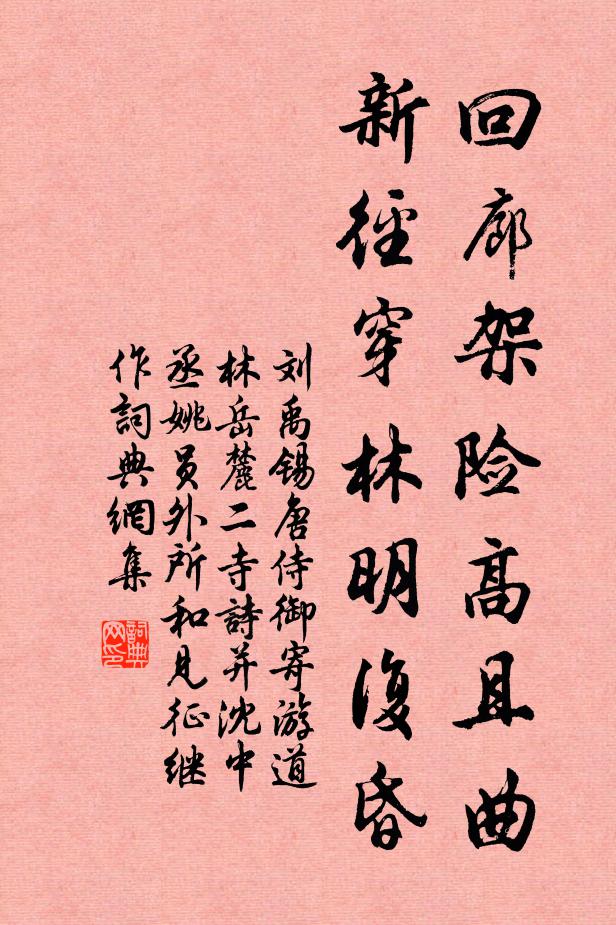 回廊架险高且曲
新径穿林明復昏
刘禹锡唐侍御寄游道
林岳麓二寺詩并沈中
丞姚员外所和见征继
作詞典網集
詞典网印